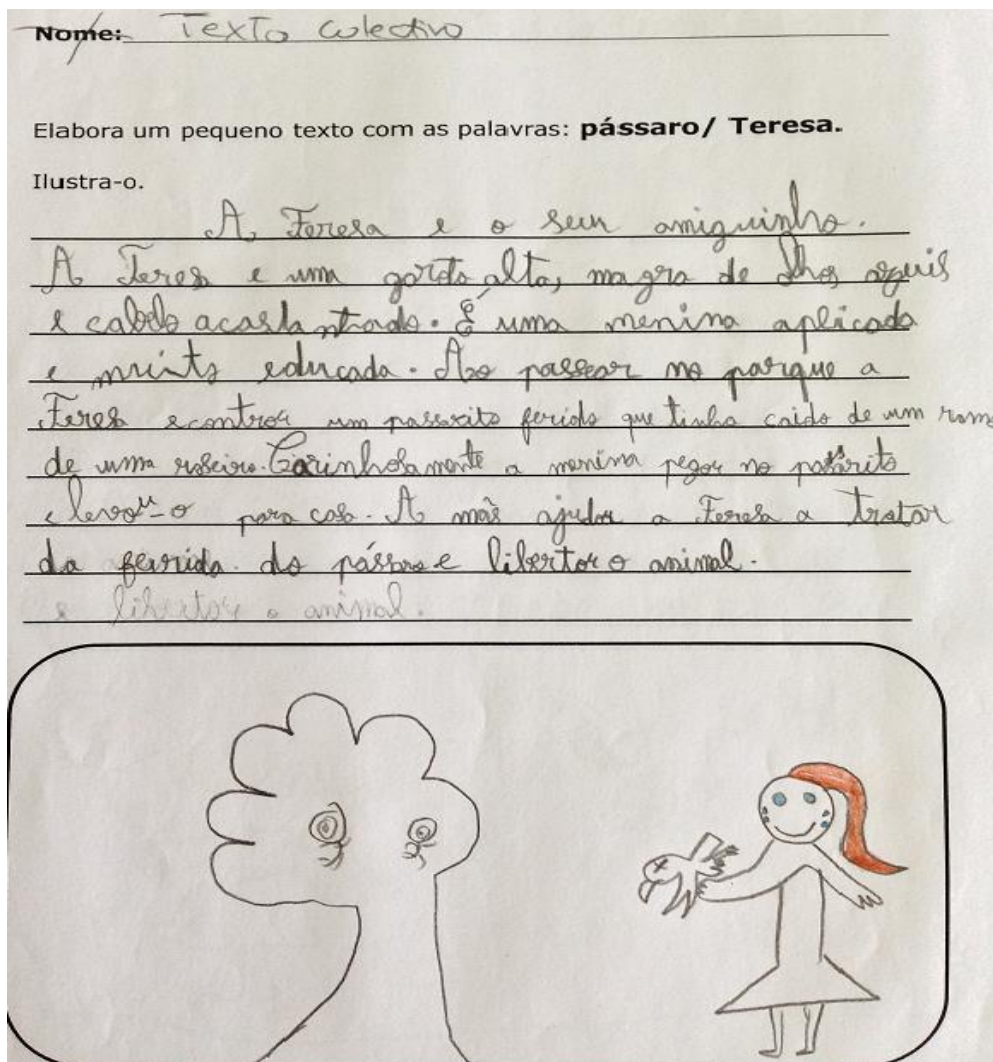 Nome: Texto colectivo
Elabora um pequeno texto com as palavras: pássaro/ Teresa.
Ilustra-o.
A Teresa e o seu amiguinho.
A Teresa e uma garota alta, magra de olhos azuis
e cabelo acastanhado. É uma menina aplicada
e muinto educada. Ao passear no parque a
Teresa econtrou um passarito ferido que tinha caido de um ramo
de uma roseira. Carinhosamente a menina pegou no passarito
e levou-o para casa. A mãe ajudou a Teresa a tratar
da ferrida. do pássaro e libertou o animal.
e libertou o animal.